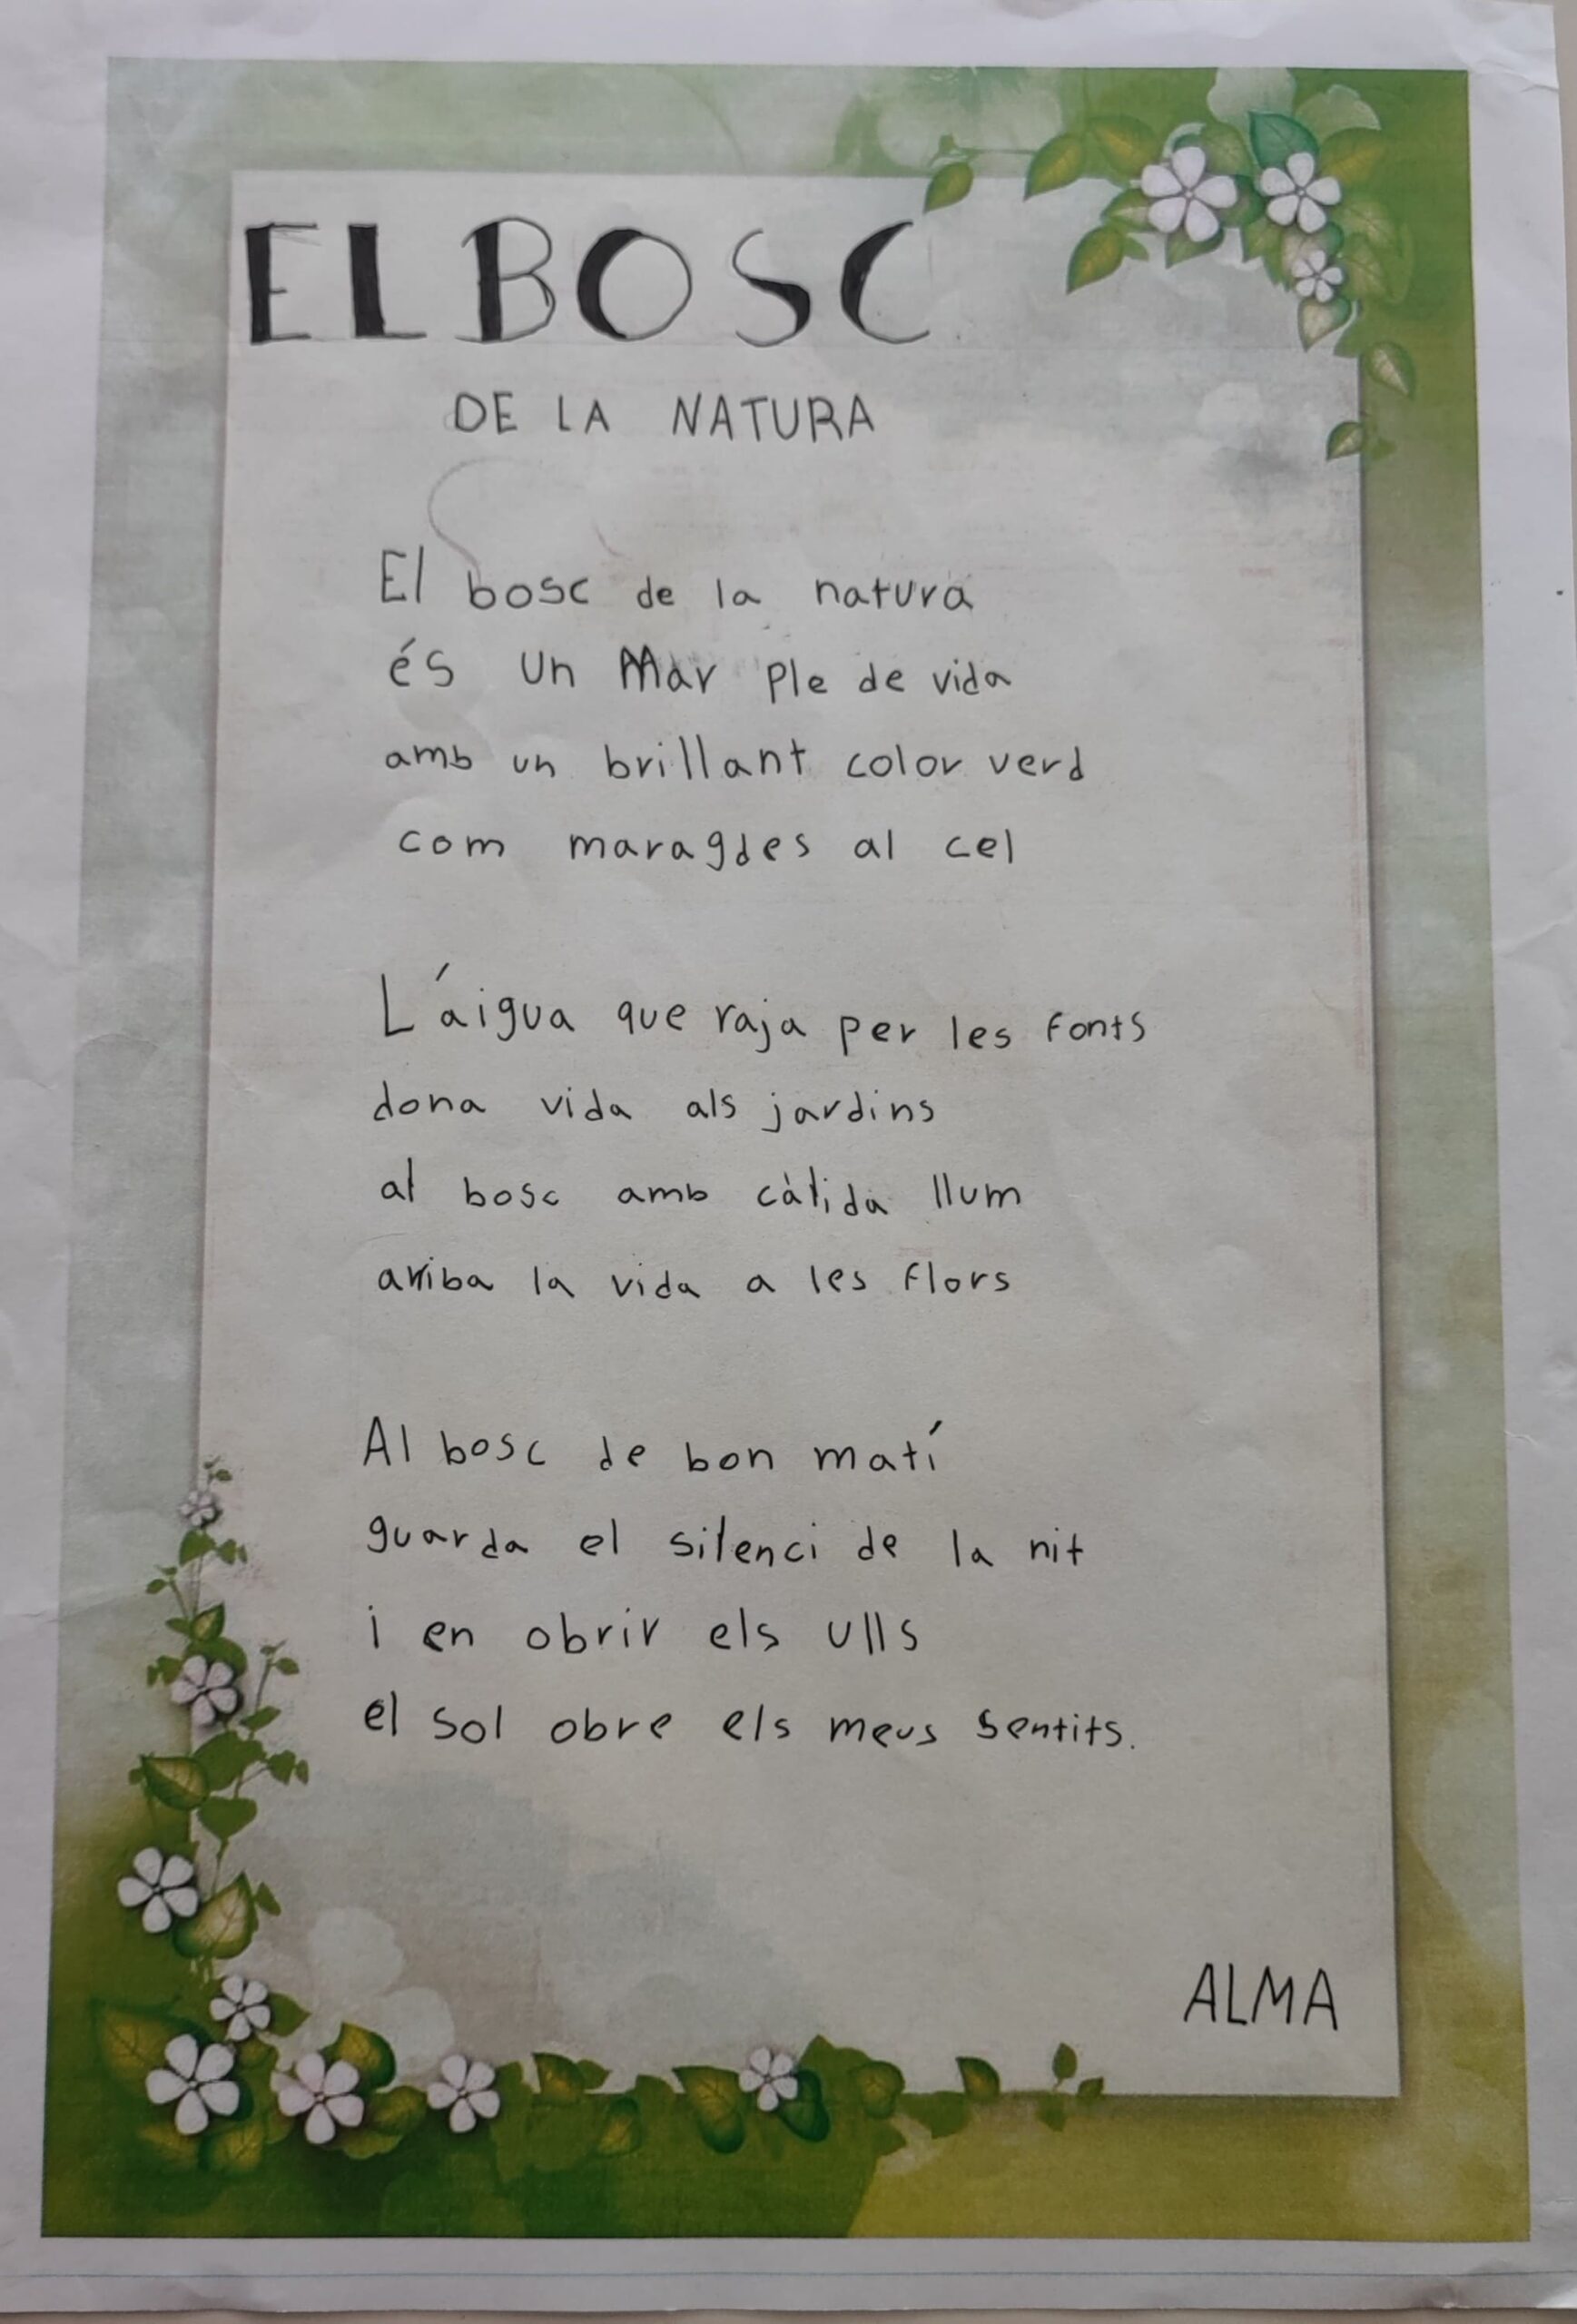 EL BOSC
DE LA NATURA
El bosc de la natura
és un Mar ple de vida
amb un brillant color verd
com maragdes al cel
L'aigua que raja per les fonts
dona vida als jardins
al bosc amb càlida llum
arriba la vida a les flors
Al bosc de bon matí
guarda el silenci de la nit
i en obrir els ulls
el sol obre els meus sentits.
ALMA